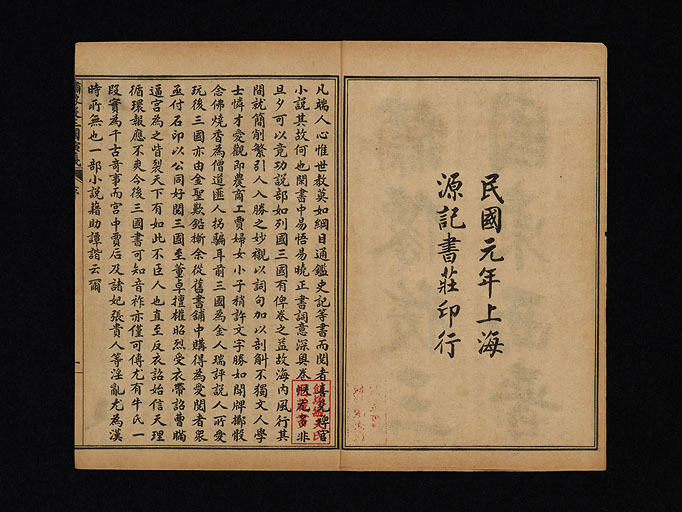 民國元年上海
源記書莊印行
凡端人心惟世教莫如綱目通鑑史記等書而閱者喜覓稗官
小說其故何也閑書中易悟易曉正書詞意深奧卷帙尤多非
旦夕可以竟功說部如列國三國有俾卷之益故海內風行其
間就簡削繁引人入勝之妙觀以詞句加以剖斛不獨文人學
士憐才愛觀即農商工賈婦女小子稍許文字勝如鬥牌擲骰
念佛燒香為僧道匪人拐騙耳前三國為金人瑞評說人所愛
玩後三國亦由金聖歎鉛槧余從舊書鋪中購得為愛閱者眾
亟付石印以公同好閱三國至董卓擅權昭烈受衣帶詔曹瞞
逼宮為之眥裂天下有如此不臣人也直至反衣詔始信天理
循環報應不爽今後三國書可知音祚亦僅可傳尤有牛氏一
段實為千古奇事而宮中賈后及諸妃張貴人等淫亂尤為漢
時所無也一部小說藉助譚諧云爾
序
一